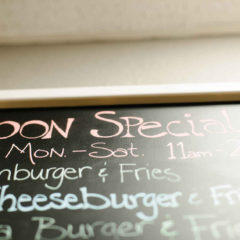 OON Special
Mon.-Sat. 11am-2
nburger & Fries
heeseburger & F
a Burger &